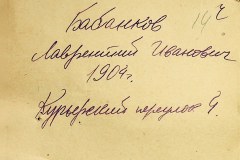 Бабанков
Лаврентий Иванович
1904г.
Курьерский переулок 4.